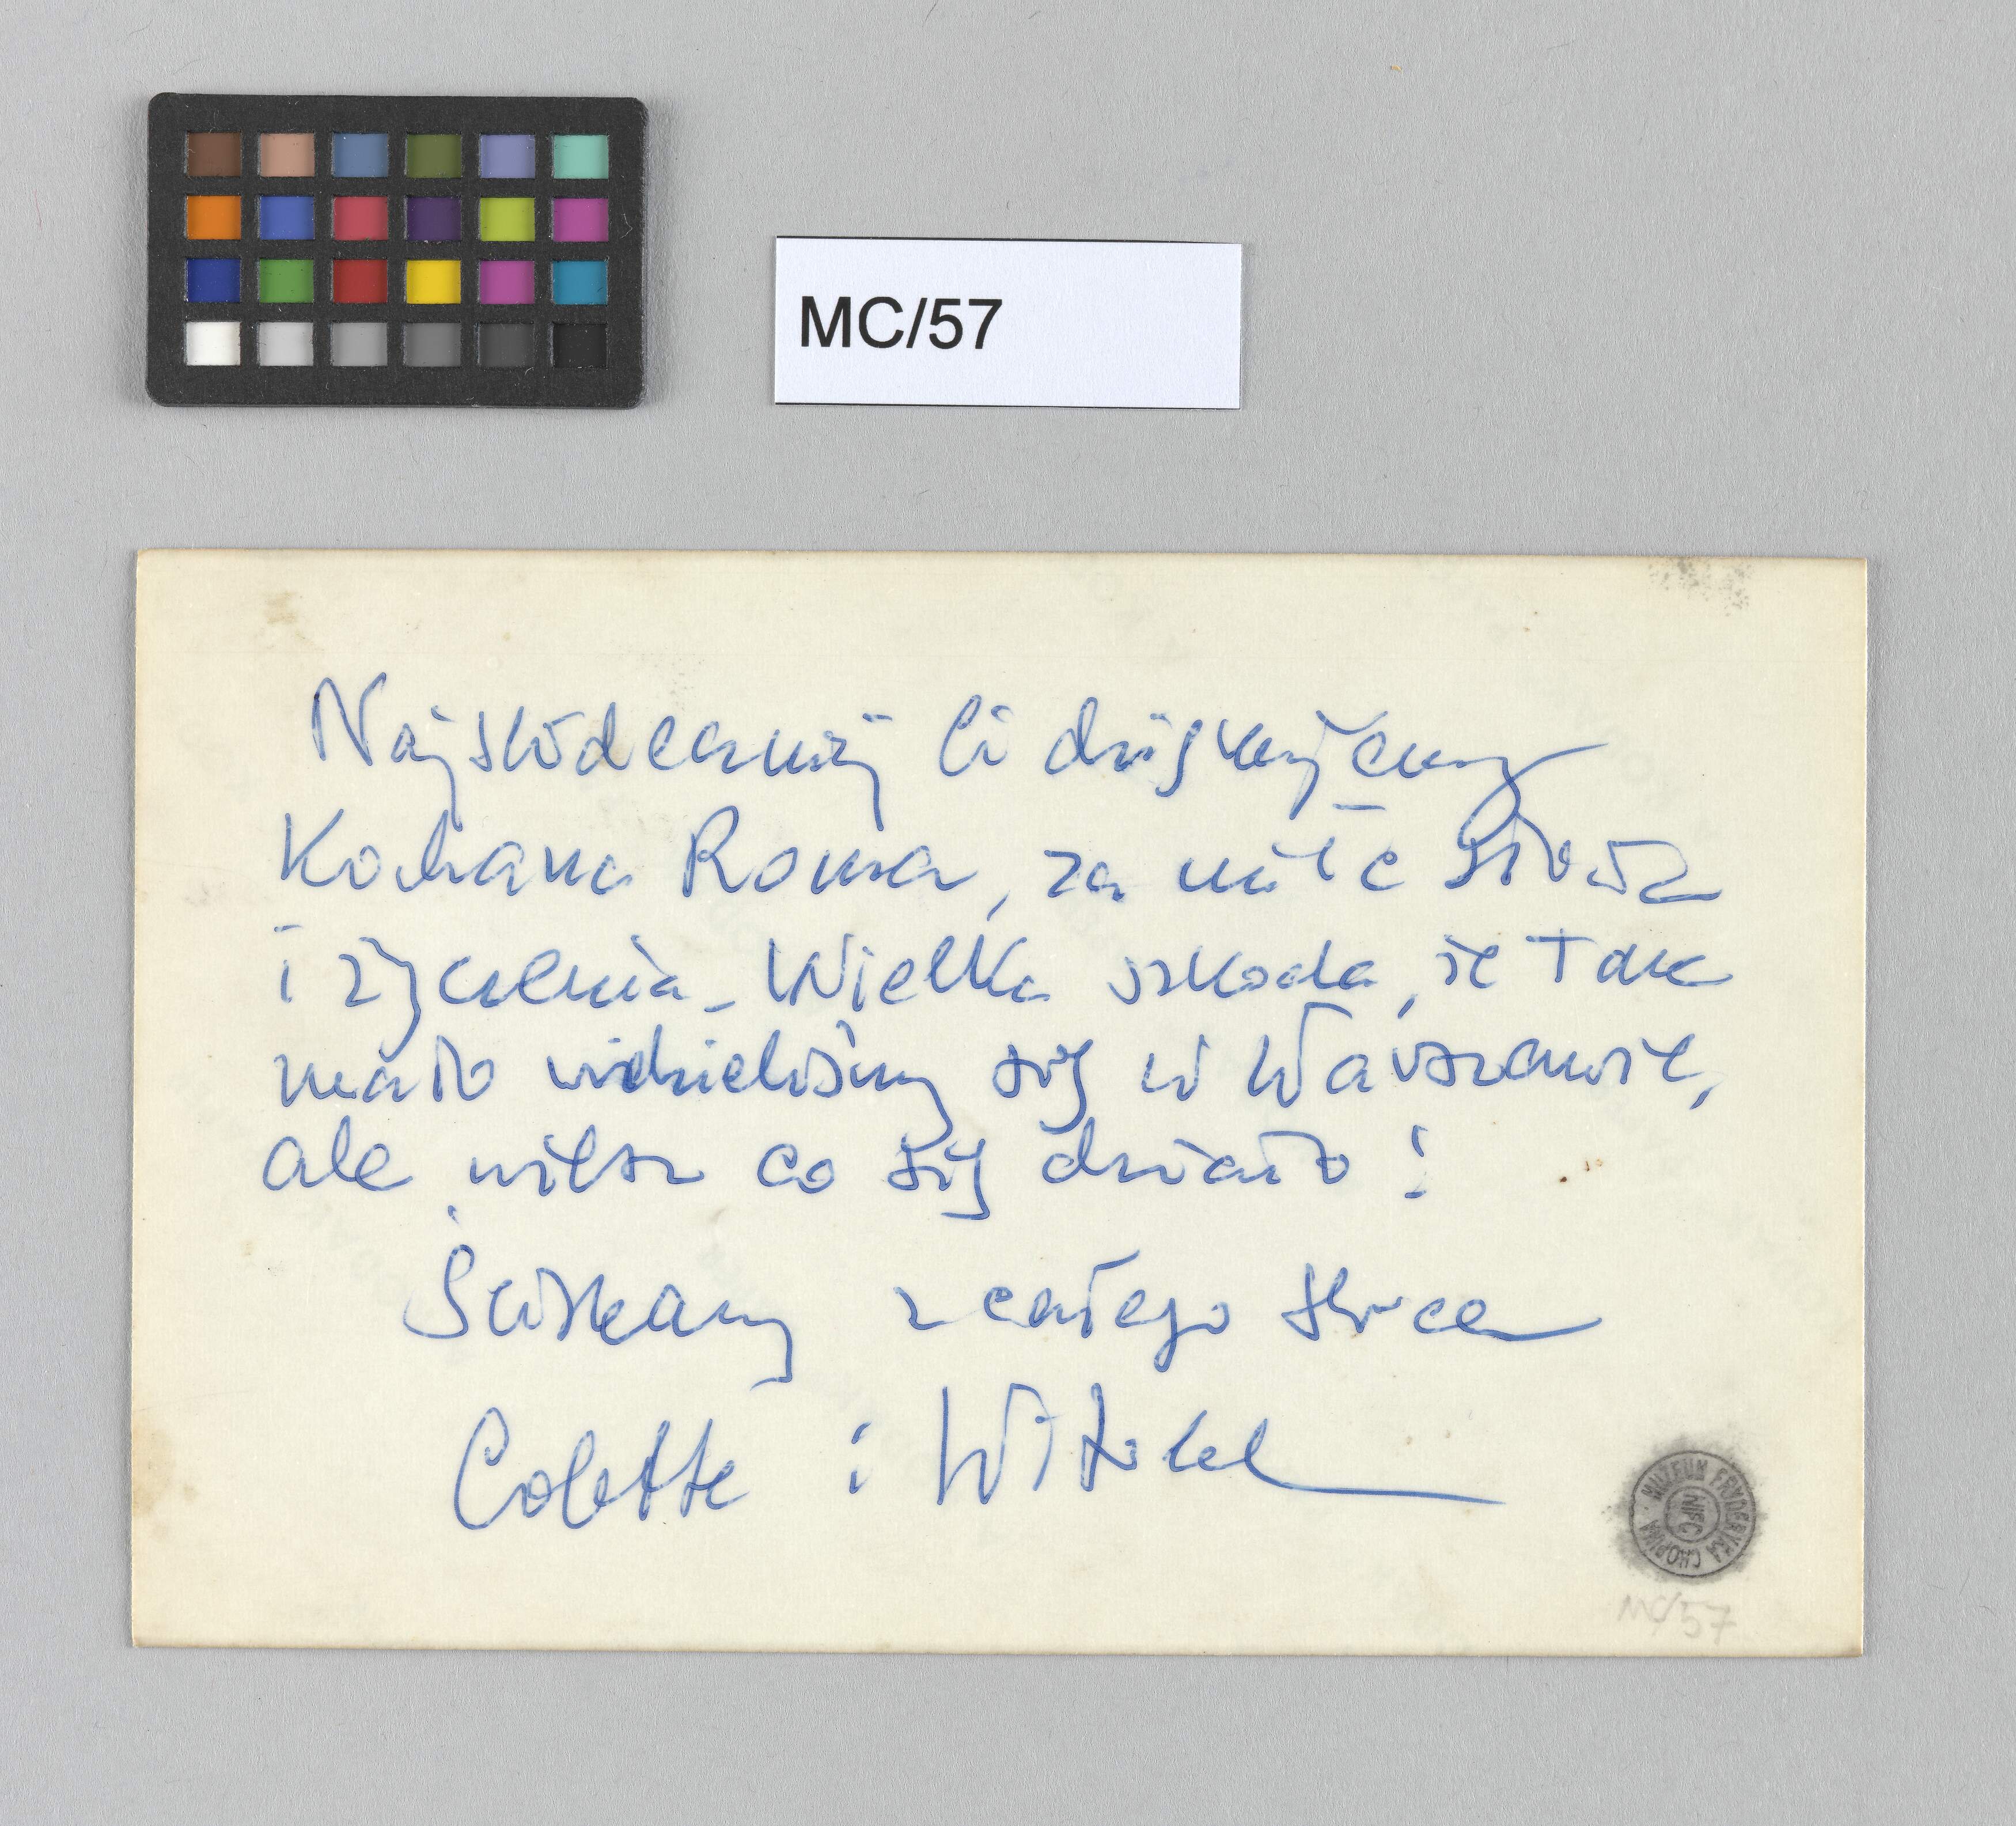 MC/57
Najserdeczniej Ci dziękujemy
Kochana Roma, za miłe słowa
i życzenia – Wielka szkoda, że tak
mało widzieliśmy się w Warszawie,
ale wiesz co się działo!
Ściskamy z całego serca
Colette i Witold
MUZEUM FRYDERYKA CHOPINA
NIFC
MC/57